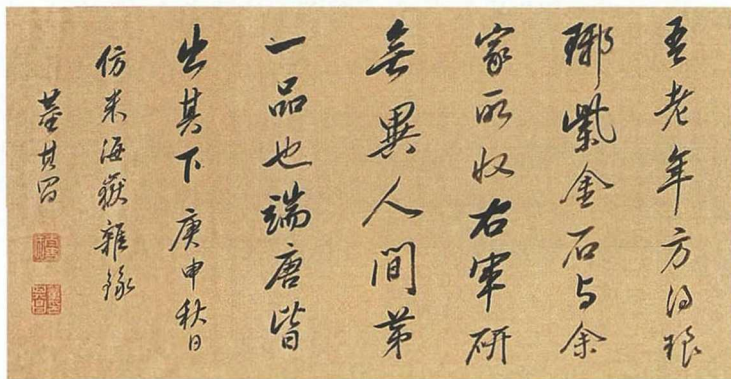 吾老年方得琅
琊紫金石与余
家所收右軍研
無異人間第
一品也端唐皆
出其下庚申秋日
仿米海嶽雜錄
董其昌